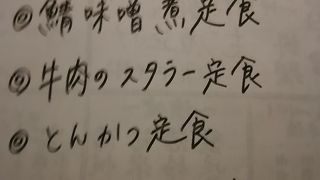 ◎ 鯖味噌煮定食
◎ 牛肉のスタラー定食
◎ とんかつ定食